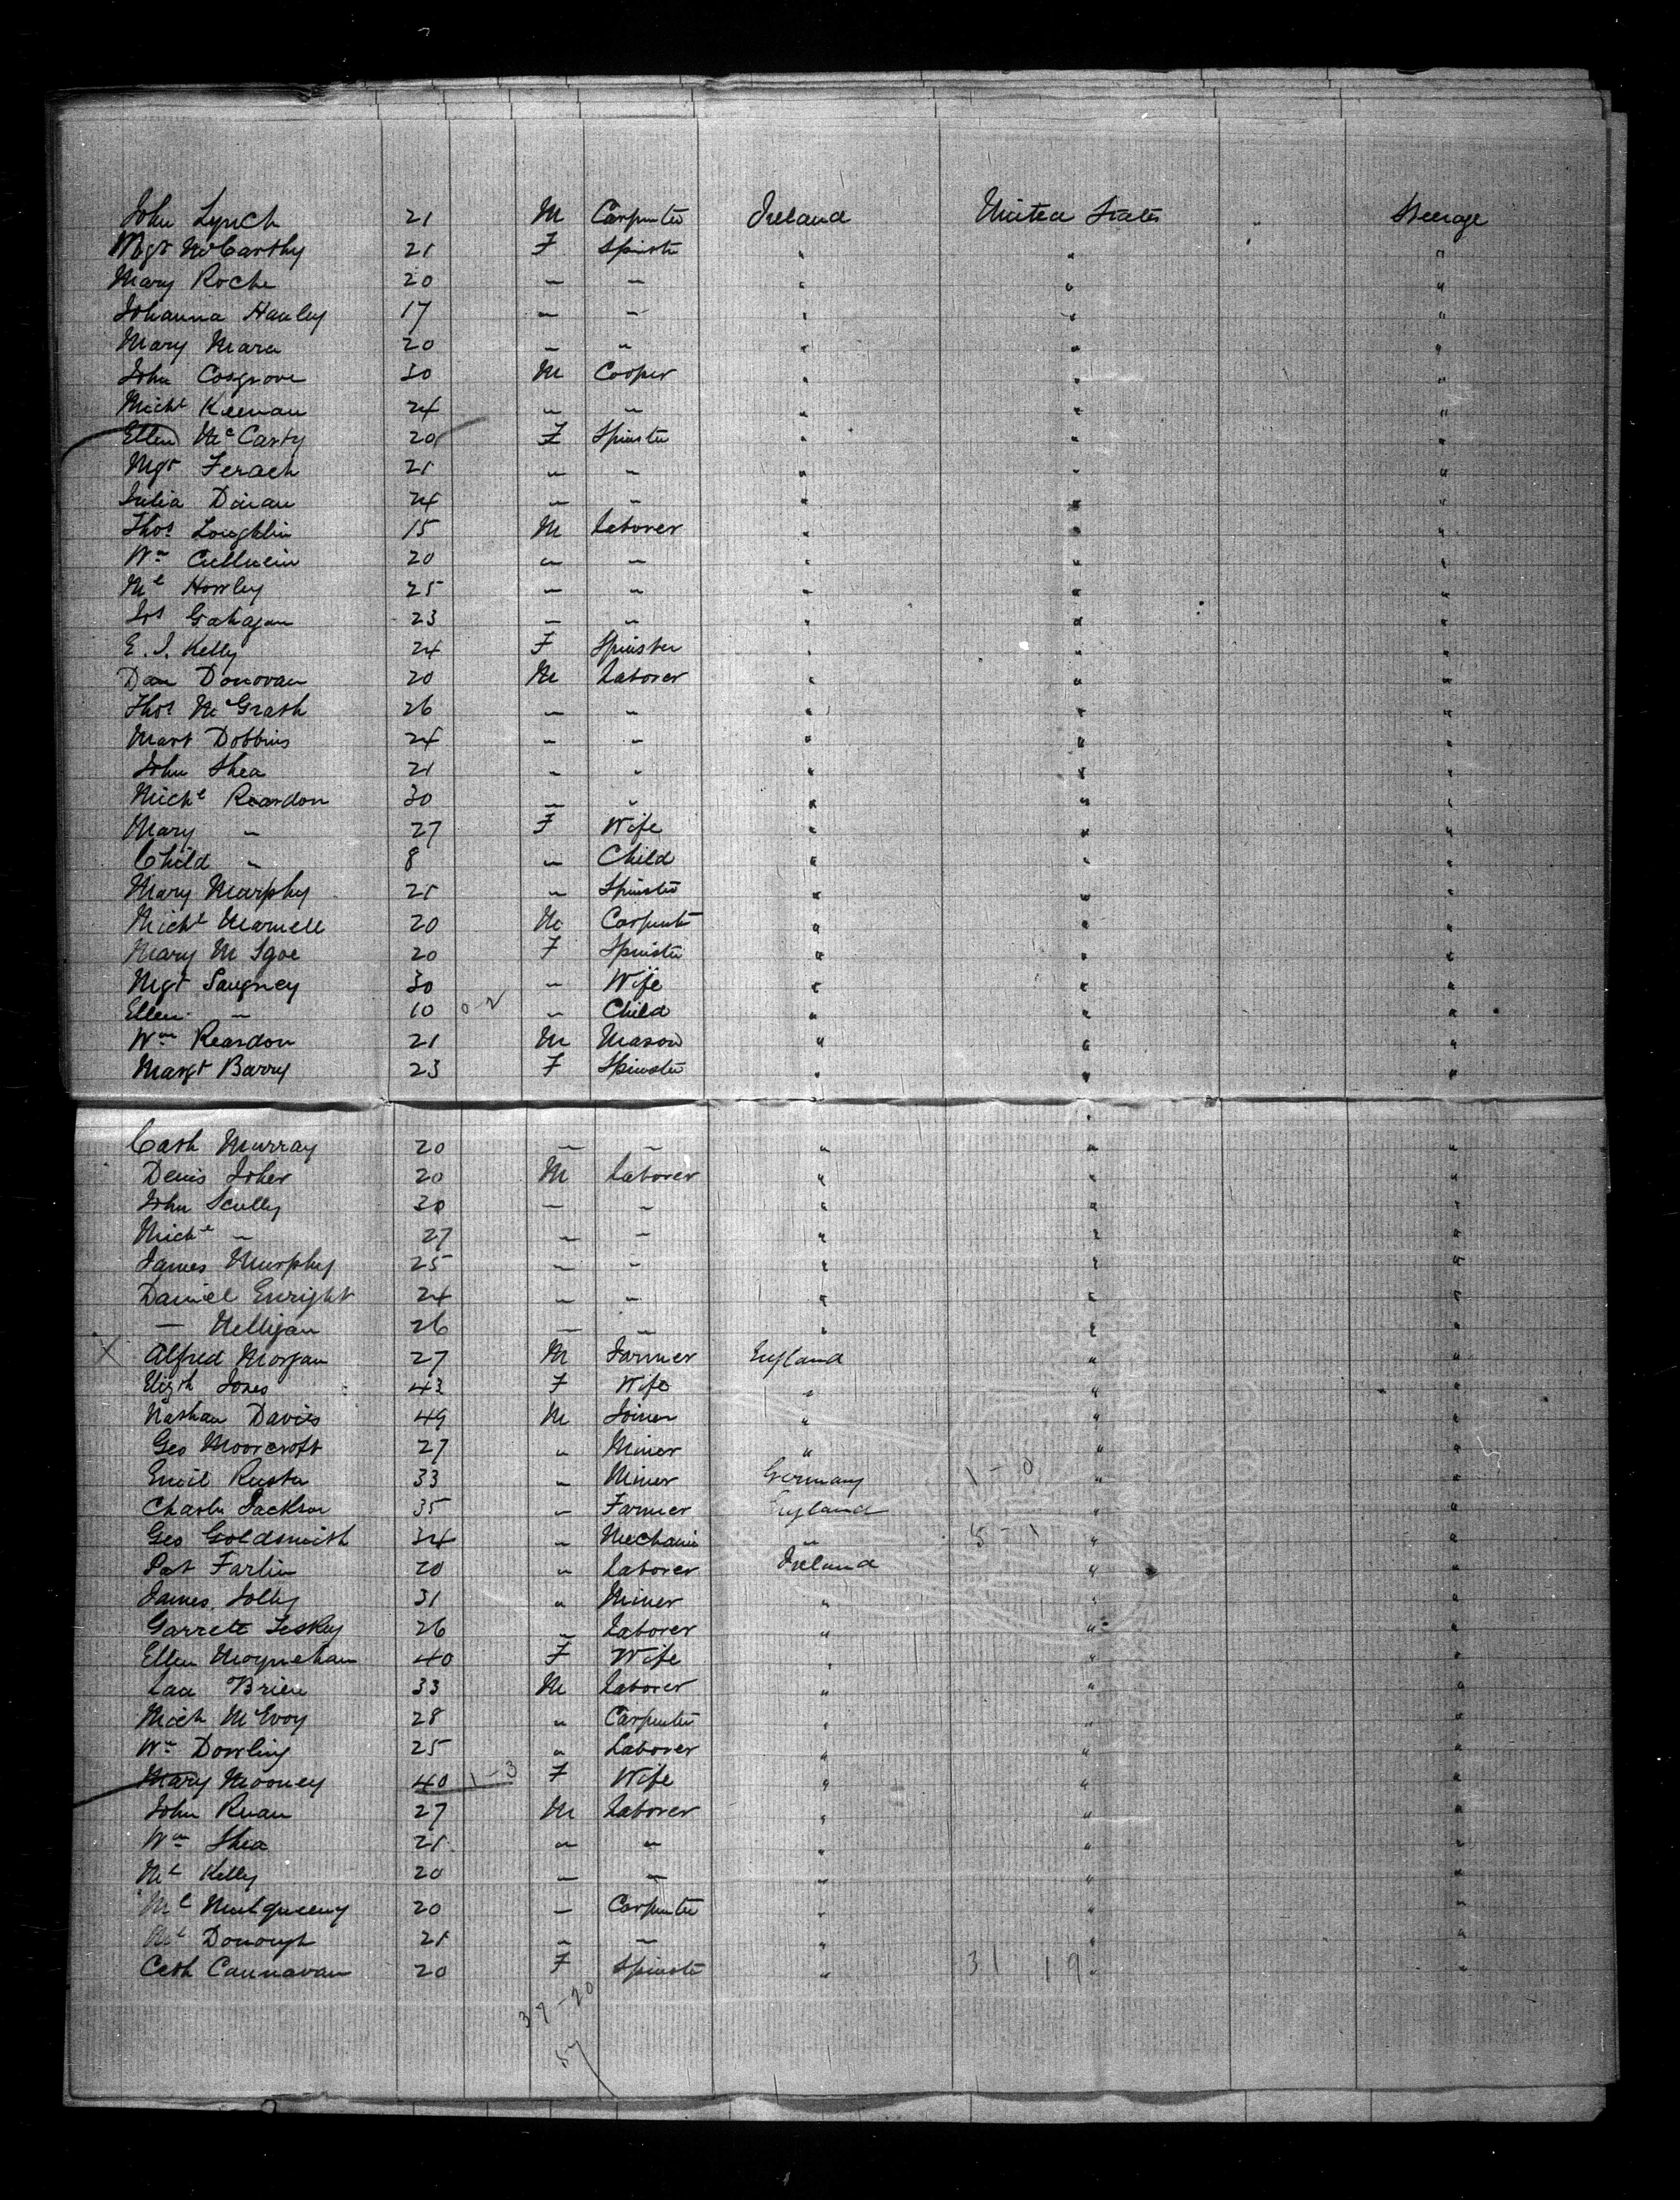 John Lynch 21 M Carpenter Ireland United States Steerage
Mgt McCarthy 21 F Spinster " " "
Mary Roche 20 " " " " "
Johanna Hanley 17 " " " " "
Mary Mara 20 " " " " "
John Cosgrove 30 M Cooper " " "
Michl Keenan 24 " " " " "
Ellen McCarty 20 F Spinster " " "
Mgt 21 " " " " "
Julia Doran 24 " " " " "
Thos Loughlin 15 M Laborer " " "
Wm 20 " " " " "
Ml Howley 25 " " " " "
Jos Gahagan 23 " " " " "
E. J. Kelly 24 F Spinster " " "
Dan Donovan 20 M Laborer " " "
Thos McGrath 26 " " " " "
Mart Dobbins 24 " " " " "
John Shea 21 " " " " "
Michl Reardon 30 " " " " "
Mary " 27 F Wife " " "
Child " 8 " Child " " "
Mary Murphy 21 " Spinster " " "
Michl 20 M Carpentr " " "
Mary M Igoe 20 F Spinster " " "
Mgt 30 " Wife " " "
Ellen " 10 0-2 " Child " " "
Wm Reardon 21 M Mason " " "
Margt Barry 23 F Spinster " " "
Cath Murray 20 " " " " "
Denis 20 M Laborer " " "
John Scully 30 " " " " "
Michl " 27 " " " " "
James Murphy 25 " " " " "
Daniel Enright 24 " " " " "
— Nelligan 26 " " " " "
X Alfred Morgan 27 M Farmer England " "
Elizth Jones 43 F Wife " " "
Nathan Davies 49 M Joiner " " "
Geo Moorcroft 27 " Miner " " "
Emil 33 " Miner Germany 1-0 " "
Charles Jackson 35 " Farmer England " "
Geo Goldsmith 34 " Mechanic " 5-1 " "
Pat Farlin 20 " Laborer Ireland " "
James Jolly 31 " Miner " " "
Garrett 26 " Laborer " " "
Ellen Moynehan 40 F Wife " " "
Brien 33 M Laborer " " "
Mich McEvoy 28 " Carpenter " " "
Wm Dowling 25 " Laborer " " "
Mary Mooney 40 1-3 F Wife " " "
John Ruan 27 M Laborer " " "
Wm Shea 21 " " " " "
Ml Kelly 20 " " " " "
Ml 20 " Carpenter " " "
Ml Donough 21 " " " " "
Cath Cannavan 20 F Spinster " 31 19 " "
37-20
57